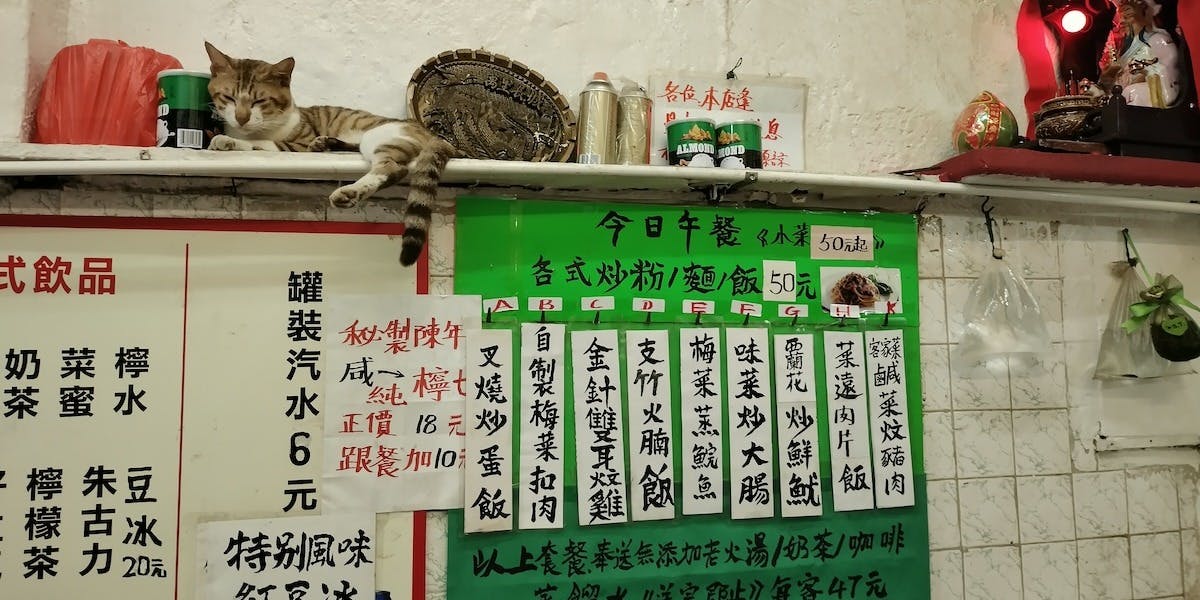 各位本店逢
ALMOND
式飲品
奶茶
菜蜜
檸水
檸檬茶
朱古力
豆冰
20元
罐裝汽水6元
秘製陳年
咸→
純檸七
正價 18元
跟餐加10元
特别風味
紅豆冰
今日午餐《小菜50元起》
各式炒粉/麵/飯50元
A B C D E F G H K
叉燒炒蛋飯
自製梅菜扣肉
金針雙耳炆雞
支竹火腩飯
梅菜蒸鯇魚
味菜炒大腸
西蘭花炒鮮魷
菜遠肉片飯
客家菜鹹菜炆豬肉
以上套餐奉送無添加老火湯/奶茶/咖啡
每客47元